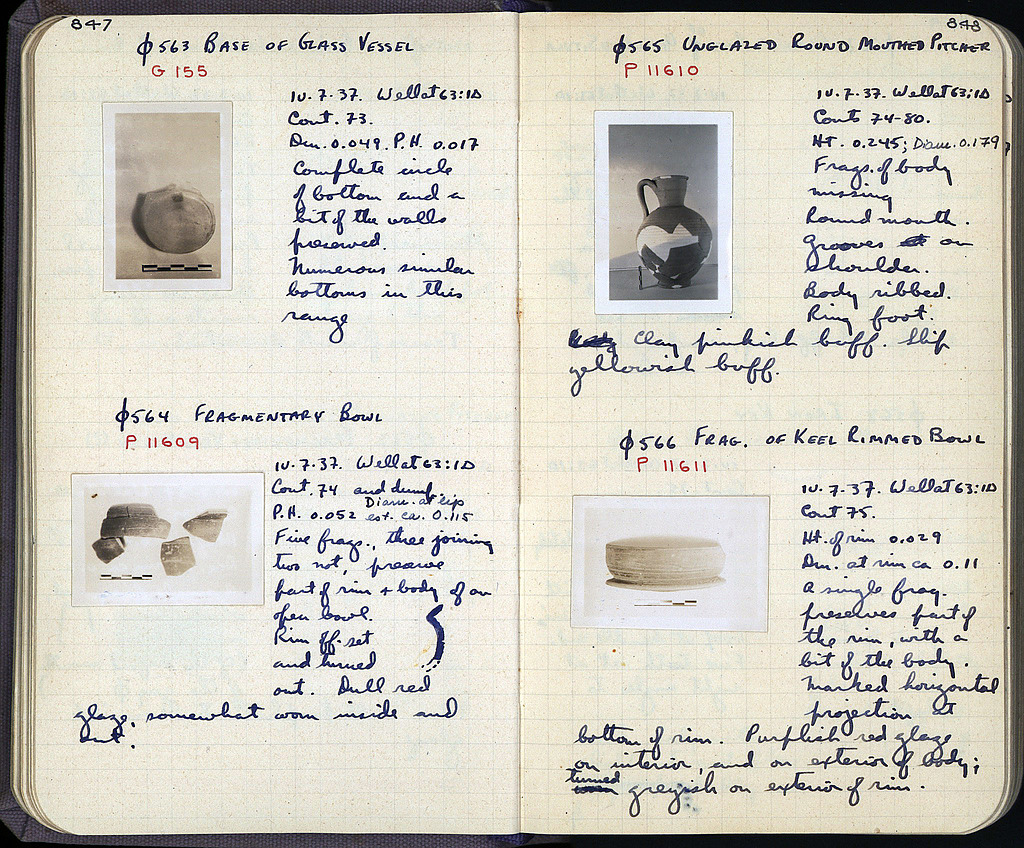 847
φ563 BASE OF GLASS VESSEL
G 155
10.7.37. Well at 63:ΙΔ
Cont. 73.
Dm. 0.049. P.H. 0.017
Complete circle
of bottom and a
bit of the walls
preserved.
Numerous similar
bottoms in this
range
φ564 FRAGMENTARY BOWL
P 11609
10.7.37. Well at 63:ΙΔ
Cont. 74 and dump.
Diam. at lip
P.H. 0.052 est. ca. 0.115
Five frags., three joining
two not, preserve
part of rim + body of an
open bowl.
Rim off-set
and turned
out. Dull red
glaze, somewhat worn inside and
out.
848
φ565 UNGLAZED ROUND MOUTHED PITCHER
P 11610
10.7.37. Well at 63:ΙΔ
Conts 74-80.
Ht. 0.245; Diam. 0.179
Frags. of body
missing
Round mouth.
Grooves on
shoulder.
Body ribbed.
Ring foot.
Clay pinkish buff. Slip
yellowish buff.
φ566 FRAG. OF KEEL RIMMED BOWL
P 11611
10.7.37. Well at 63:ΙΔ
Cont 75.
Ht. of rim 0.029
Dm. at rim ca 0.11
A single frag.
preserves part of
the rim, with a
bit of the body.
Marked horizontal
projection at
bottom of rim. Purplish red glaze
on interior, and on exterior of body;
turned greyish on exterior of rim.